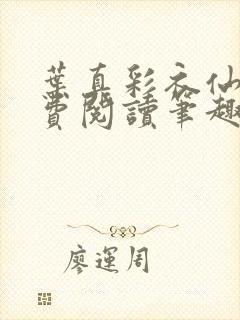 葉真彩衣仙
費閱讀筆趣
廖運周